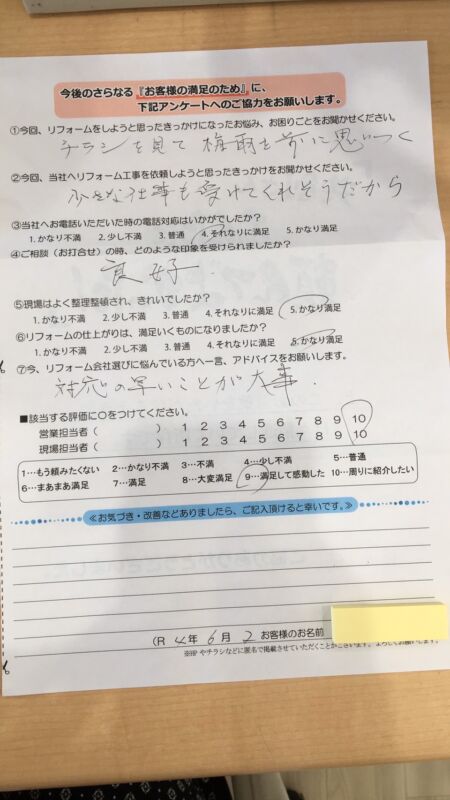 今後のさらなる『お客様の満足のため』に、
下記アンケートへのご協力をお願いします。
①今回、リフォームをしようと思ったきっかけになったお悩み、お困りごとをお聞かせください。
チラシを見て 梅雨を前に思いつく
②今回、当社へリフォーム工事を依頼しようと思ったきっかけをお聞かせください。
小さな仕事も受けてくれそうだから
③当社へお電話いただいた時の電話対応はいかがでしたか?
1. かなり不満 2. 少し不満 3. 普通 4. それなりに満足 5. かなり満足
④ご相談(お打合せ)の時、どのような印象を受けられましたか?
良好.
⑤現場はよく整理整頓され、きれいでしたか?
1. かなり不満 2. 少し不満 3. 普通 4. それなりに満足 5. かなり満足
⑥リフォームの仕上がりは、満足いくものになりましたか?
1. かなり不満 2. 少し不満 3. 普通 4. それなりに満足 5. かなり満足
⑦今、リフォーム会社選びに悩んでいる方へ一言、アドバイスをお願いします。
対応の早いことが大事.
■該当する評価に○をつけてください。
営業担当者 ( ) 1 2 3 4 5 6 7 8 9 10
現場担当者 ( ) 1 2 3 4 5 6 7 8 9 10
1…もう頼みたくない 2…かなり不満 3…不満 4…少し不満 5…普通
6…まあまあ満足 7…満足 8…大変満足 9…満足して感動した 10…周りに紹介したい
≪お気づき・改善などありましたら、ご記入頂けると幸いです。≫
(R 4年 6月 2 お客様のお名前
※HPやチラシなどに匿名で掲載させていただくことがございます。よろしくお願いします。